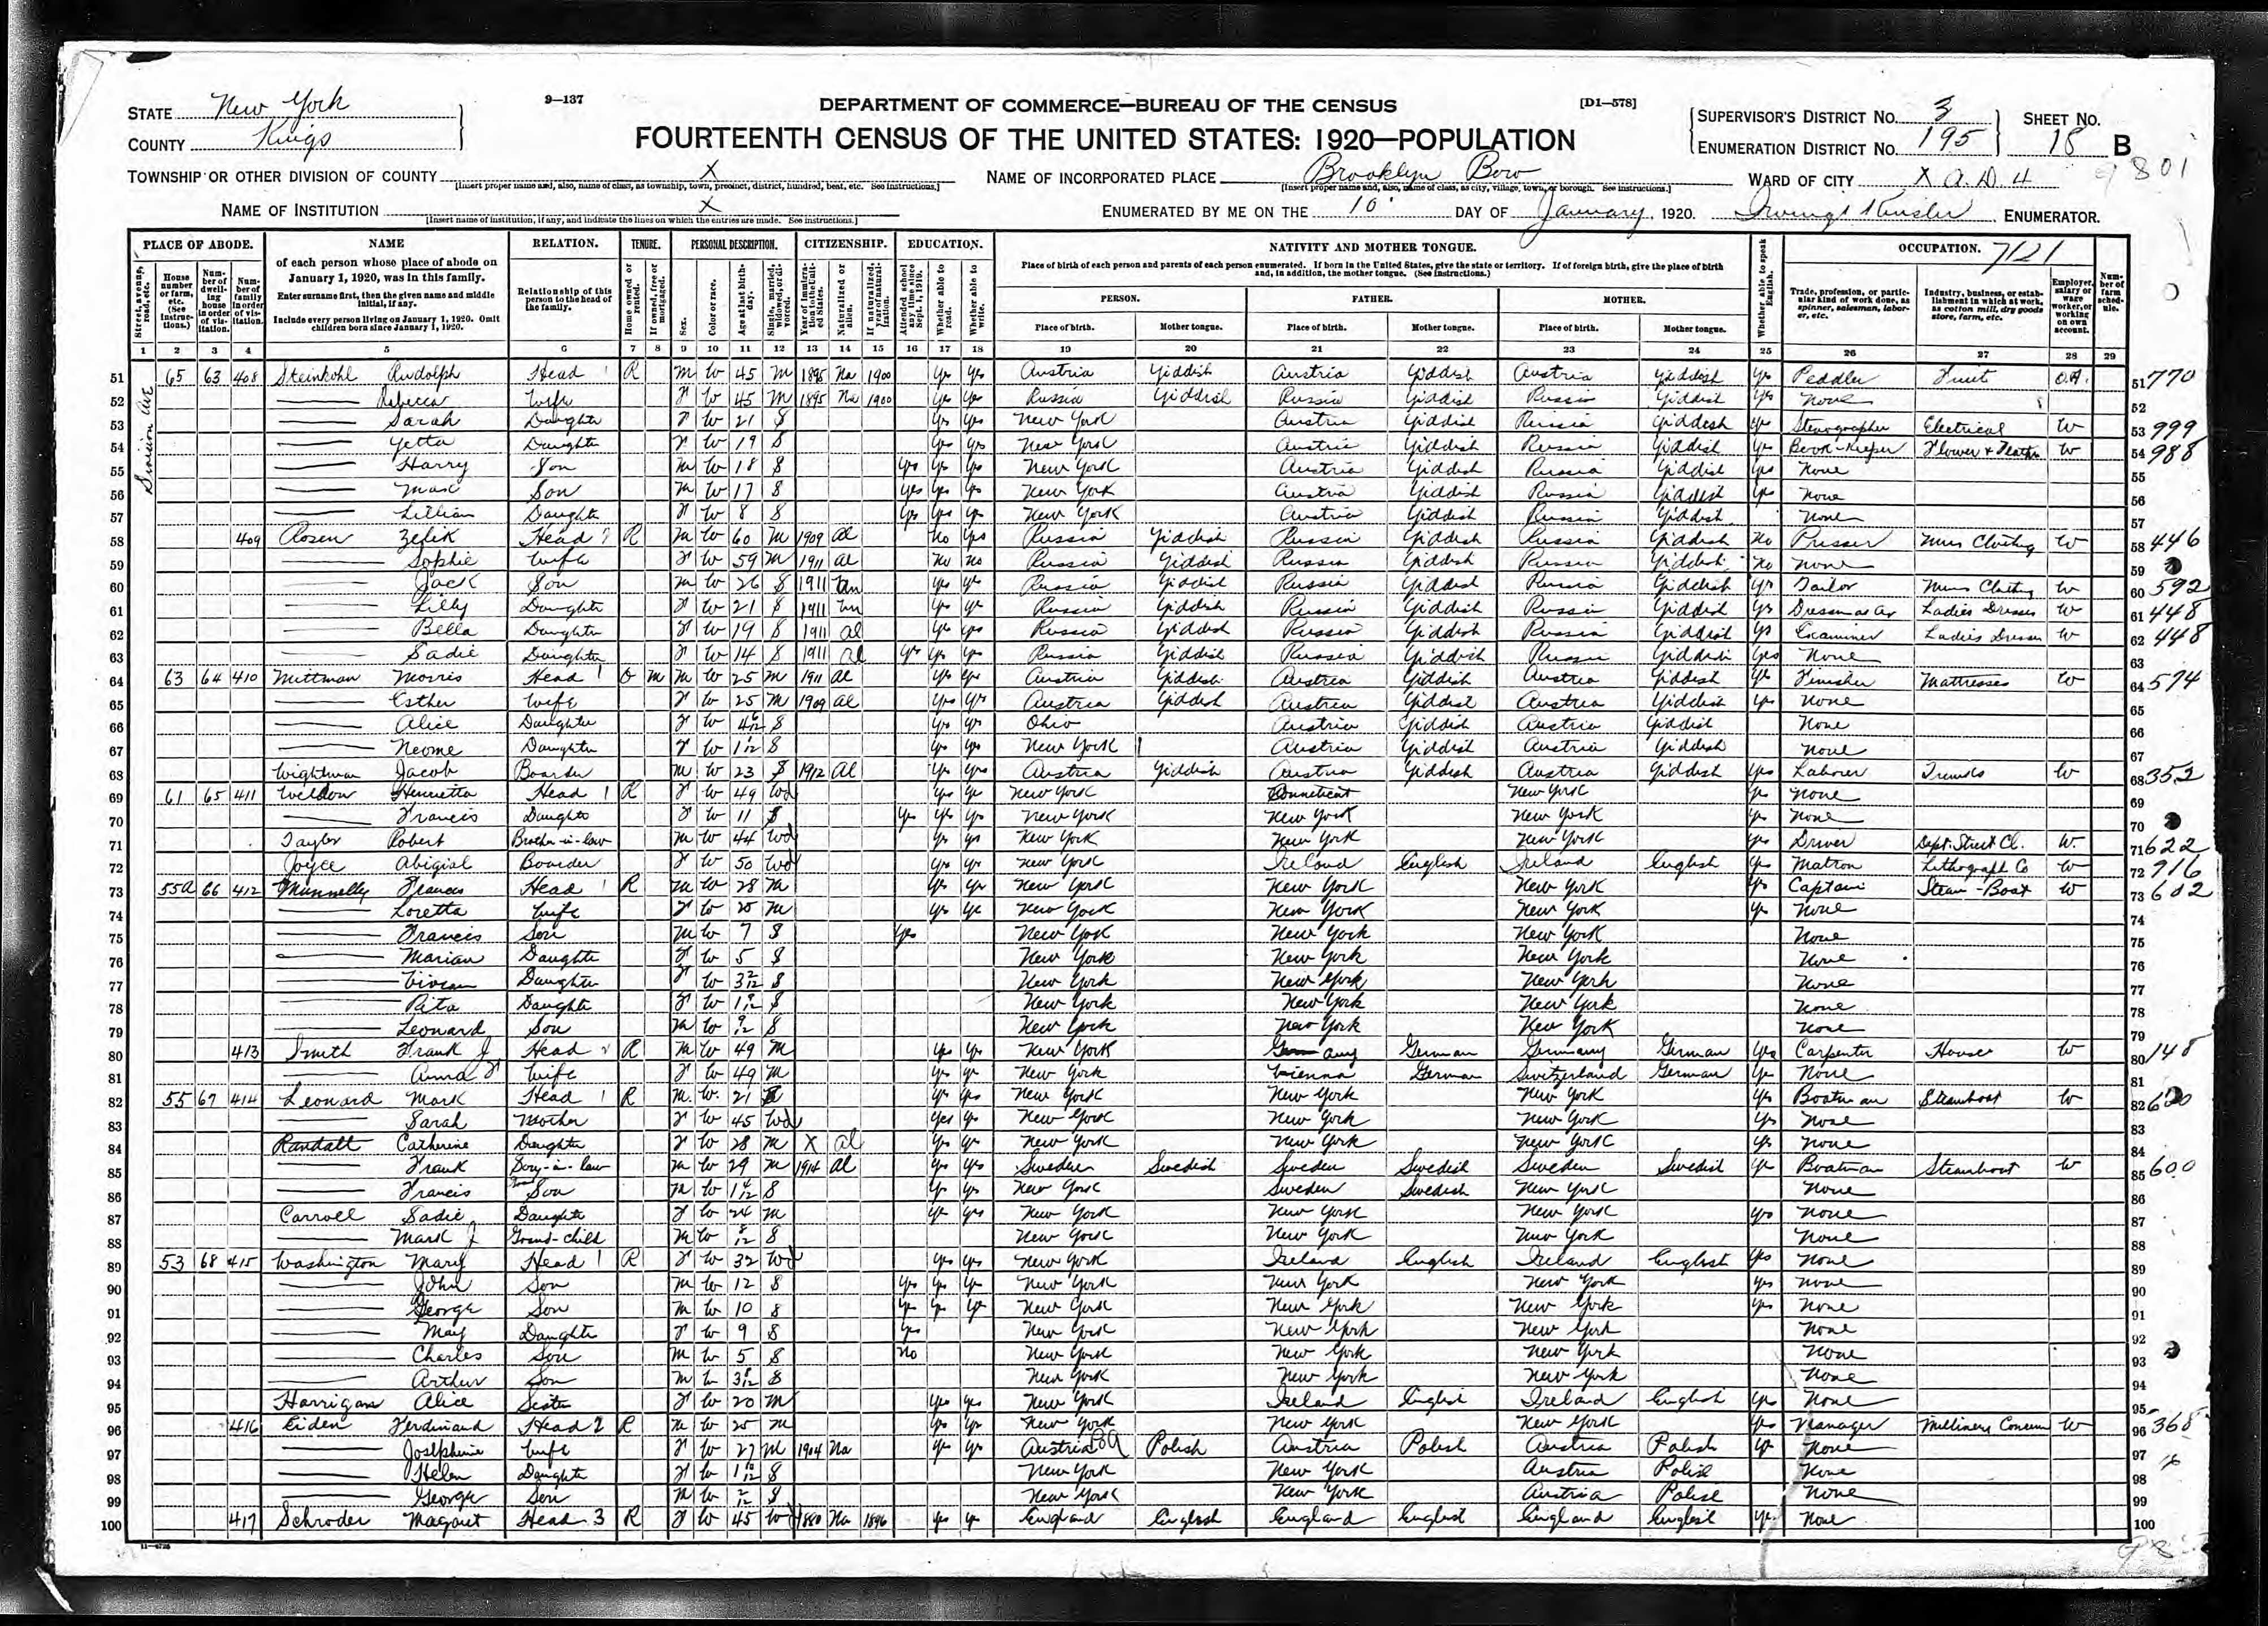 9—137
DEPARTMENT OF COMMERCE—BUREAU OF THE CENSUS
[D1—578]
STATE New York
COUNTY Kings
FOURTEENTH CENSUS OF THE UNITED STATES: 1920—POPULATION
SUPERVISOR'S DISTRICT No. 3
ENUMERATION DISTRICT No. 195
SHEET No. 18 B
801
TOWNSHIP OR OTHER DIVISION OF COUNTY X
[Insert proper name and, also, name of class, as township, town, precinct, district, hundred, beat, etc. See instructions.]
NAME OF INCORPORATED PLACE Brooklyn Boro
[Insert proper name and, also, name of class, as city, village, town, or borough. See instructions.]
WARD OF CITY X A.D. 4
NAME OF INSTITUTION X
[Insert name of institution, if any, and indicate the lines on which the entries are made. See instructions.]
ENUMERATED BY ME ON THE 10 DAY OF January, 1920. ENUMERATOR.
PLACE OF ABODE. NAME RELATION. TENURE. PERSONAL DESCRIPTION. CITIZENSHIP. EDUCATION. NATIVITY AND MOTHER TONGUE. OCCUPATION. 7121
of each person whose place of abode on January 1, 1920, was in this family.
Enter surname first, then the given name and middle initial, if any.
Include every person living on January 1, 1920. Omit children born since January 1, 1920.
Relationship of this person to the head of the family.
Place of birth of each person and parents of each person enumerated. If born in the United States, give the state or territory. If of foreign birth, give the place of birth and, in addition, the mother tongue. (See instructions.)
PERSON. FATHER. MOTHER.
Place of birth. Mother tongue. Place of birth. Mother tongue. Place of birth. Mother tongue.
Street, avenue, road, etc.
House number or farm, etc. (See instructions.)
Number of dwelling house in order of visitation.
Number of family in order of visitation.
Home owned or rented.
If owned, free or mortgaged.
Sex.
Color or race.
Age at last birthday.
Single, married, widowed, or divorced.
Year of immigration to the United States.
Naturalized or alien.
If naturalized, year of naturalization.
Attended school any time since Sept. 1, 1919.
Whether able to read.
Whether able to write.
Whether able to speak English.
Trade, profession, or particular kind of work done, as spinner, salesman, laborer, etc.
Industry, business, or establishment in which at work, as cotton mill, dry goods store, farm, etc.
Employer, salary or wage worker, or working on own account.
Number of farm schedule.
1 2 3 4 5 6 7 8 9 10 11 12 13 14 15 16 17 18 19 20 21 22 23 24 25 26 27 28 29
Division Ave
51 65 63 408 Steinkohl Rudolph Head 1 R M W 45 M 1895 Na 1900 Yes Yes Austria Yiddish Austria Yiddish Austria Yiddish Yes Peddler Fruit O.A. 51 770
52 Rebecca Wife F W 45 M 1895 Na 1900 Yes Yes Russia Yiddish Russia Yiddish Russia Yiddish Yes None 52
53 Sarah Daughter F W 21 S Yes Yes New York Austria Yiddish Russia Yiddish Yes Stenographer Electrical W 53 999
54 Yetta Daughter F W 19 S Yes Yes New York Austria Yiddish Russia Yiddish Yes Book-Keeper Flower + Feather W 54 988
55 Harry Son M W 18 S Yes Yes Yes New York Austria Yiddish Russia Yiddish Yes None 55
56 Max Son M W 17 S Yes Yes Yes New York Austria Yiddish Russia Yiddish Yes None 56
57 Lillian Daughter F W 8 S Yes Yes Yes New York Austria Yiddish Russia Yiddish None 57
58 409 Rosen Zelik Head 2 R M W 60 M 1909 Al No Yes Russia Yiddish Russia Yiddish Russia Yiddish No Presser Mens Clothing W 58 446
59 Sophie Wife F W 59 M 1911 Al No No Russia Yiddish Russia Yiddish Russia Yiddish No None 59
60 Jack Son M W 26 S 1911 Yes Yes Russia Yiddish Russia Yiddish Russia Yiddish Yes Tailor Mens Clothing W 60 592
61 Lilly Daughter F W 21 S 1911 Yes Yes Russia Yiddish Russia Yiddish Russia Yiddish Yes Dressmaker Ladies Dresses W 61 448
62 Bella Daughter F W 19 S 1911 Al Yes Yes Russia Yiddish Russia Yiddish Russia Yiddish Yes Examiner Ladies Dresses W 62 448
63 Sadie Daughter F W 14 S 1911 Al Yes Yes Yes Russia Yiddish Russia Yiddish Russia Yiddish Yes None 63
64 63 64 410 Mittman Morris Head 1 O M M W 25 M 1911 Al Yes Yes Austria Yiddish Austria Yiddish Austria Yiddish Yes Finisher Mattresses W 64 574
65 Esther Wife F W 25 M 1909 Al Yes Yes Austria Yiddish Austria Yiddish Austria Yiddish Yes None 65
66 Alice Daughter F W S Yes Yes Ohio Austria Yiddish Austria Yiddish None 66
67 Neome Daughter F W S Yes Yes New York Austria Yiddish Austria Yiddish None 67
68 Wightman Jacob Boarder M W 23 S 1912 Al Yes Yes Austria Yiddish Austria Yiddish Austria Yiddish Yes Laborer Trunks W 68 352
69 61 65 411 Weldon Henrietta Head 1 R F W 49 Wd Yes Yes New York Conneticut New York Yes None 69
70 Francis Daughter F W 11 S Yes Yes Yes New York New York New York Yes None 70
71 Taylor Robert Brother-in-law M W 44 Wd Yes Yes New York New York New York Yes Driver Dept. Street Cl. W. 71 622
72 Joyce Abigial Boarder F W 50 Wd Yes Yes New York Ireland English Ireland English Yes Matron Lithograph Co W 72 916
73 55A 66 412 Munnelly Francis Head 1 R M W 28 M Yes Yes New York New York New York Yes Captain Steam-Boat W 73 602
74 Loretta Wife F W M Yes Yes New York New York New York Yes None 74
75 Francis Son M W 7 S Yes New York New York New York None 75
76 Marian Daughter F W 5 S New York New York New York None 76
77 Vivian Daughter F W 3 2/12 S New York New York New York None 77
78 Rita Daughter F W S New York New York New York None 78
79 Leonard Son M W S New York New York New York None 79
80 413 Smith Frank J Head 2 R M W 49 M Yes Yes New York Germany German Germany German Yes Carpenter House W 80 148
81 Anna F Wife F W 49 M Yes Yes New York Vienna German Switzerland German Yes None 81
82 55 67 414 Leonard Mark Head 1 R M. W. 21 Yes Yes New York New York New York Yes Boatman Steamboat W 82
83 Sarah Mother F W 45 Wd Yes Yes New York New York New York Yes None 83
84 Randall Catherine Daughter F W 28 M X Al Yes Yes New York New York New York Yes None 84
85 Frank Son-in-law M W 29 M 1914 Al Yes Yes Sweden Swedish Sweden Swedish Sweden Swedish Yes Boatman Steamboat W 85 600
86 Francis Grand Son M W S Yes Yes New York Sweden Swedish New York None 86
87 Carroll Sadie Daughter F W 24 M Yes Yes New York New York New York Yes None 87
88 Mark J Grand-child M W 8/12 S New York New York New York None 88
89 53 68 415 Washington Mary Head 1 R F W 32 Wd Yes Yes New York Ireland English Ireland English Yes None 89
90 John Son M W 12 S Yes Yes Yes New York New York New York Yes None 90
91 George Son M W 10 S Yes Yes Yes New York New York New York Yes None 91
92 May Daughter F W 9 S Yes New York New York New York None 92
93 Charles Son M W 5 S No New York New York New York None 93
94 Arthur Son M W S New York New York New York None 94
95 Harrigan Alice Sister F W 20 M Yes Yes New York Ireland English Ireland English Yes None 95
96 416 Eiden Ferdinand Head 2 R M W M Yes Yes New York New York New York Yes Manager Millinery Concern W 96 368
97 Josephine Wife F W 27 M 1904 Na Yes Yes Austria Polish Austria Polish Austria Polish Yes None 97
98 Helen Daughter F W S New York New York Austria Polish None 98
99 George Son M W 2/12 S New York New York Austria Polish None 99
100 417 Schroder Magaret Head 3 R F W 45 Wd 1880 Na 1896 Yes Yes England English England English England English Yes None 100
11—4725